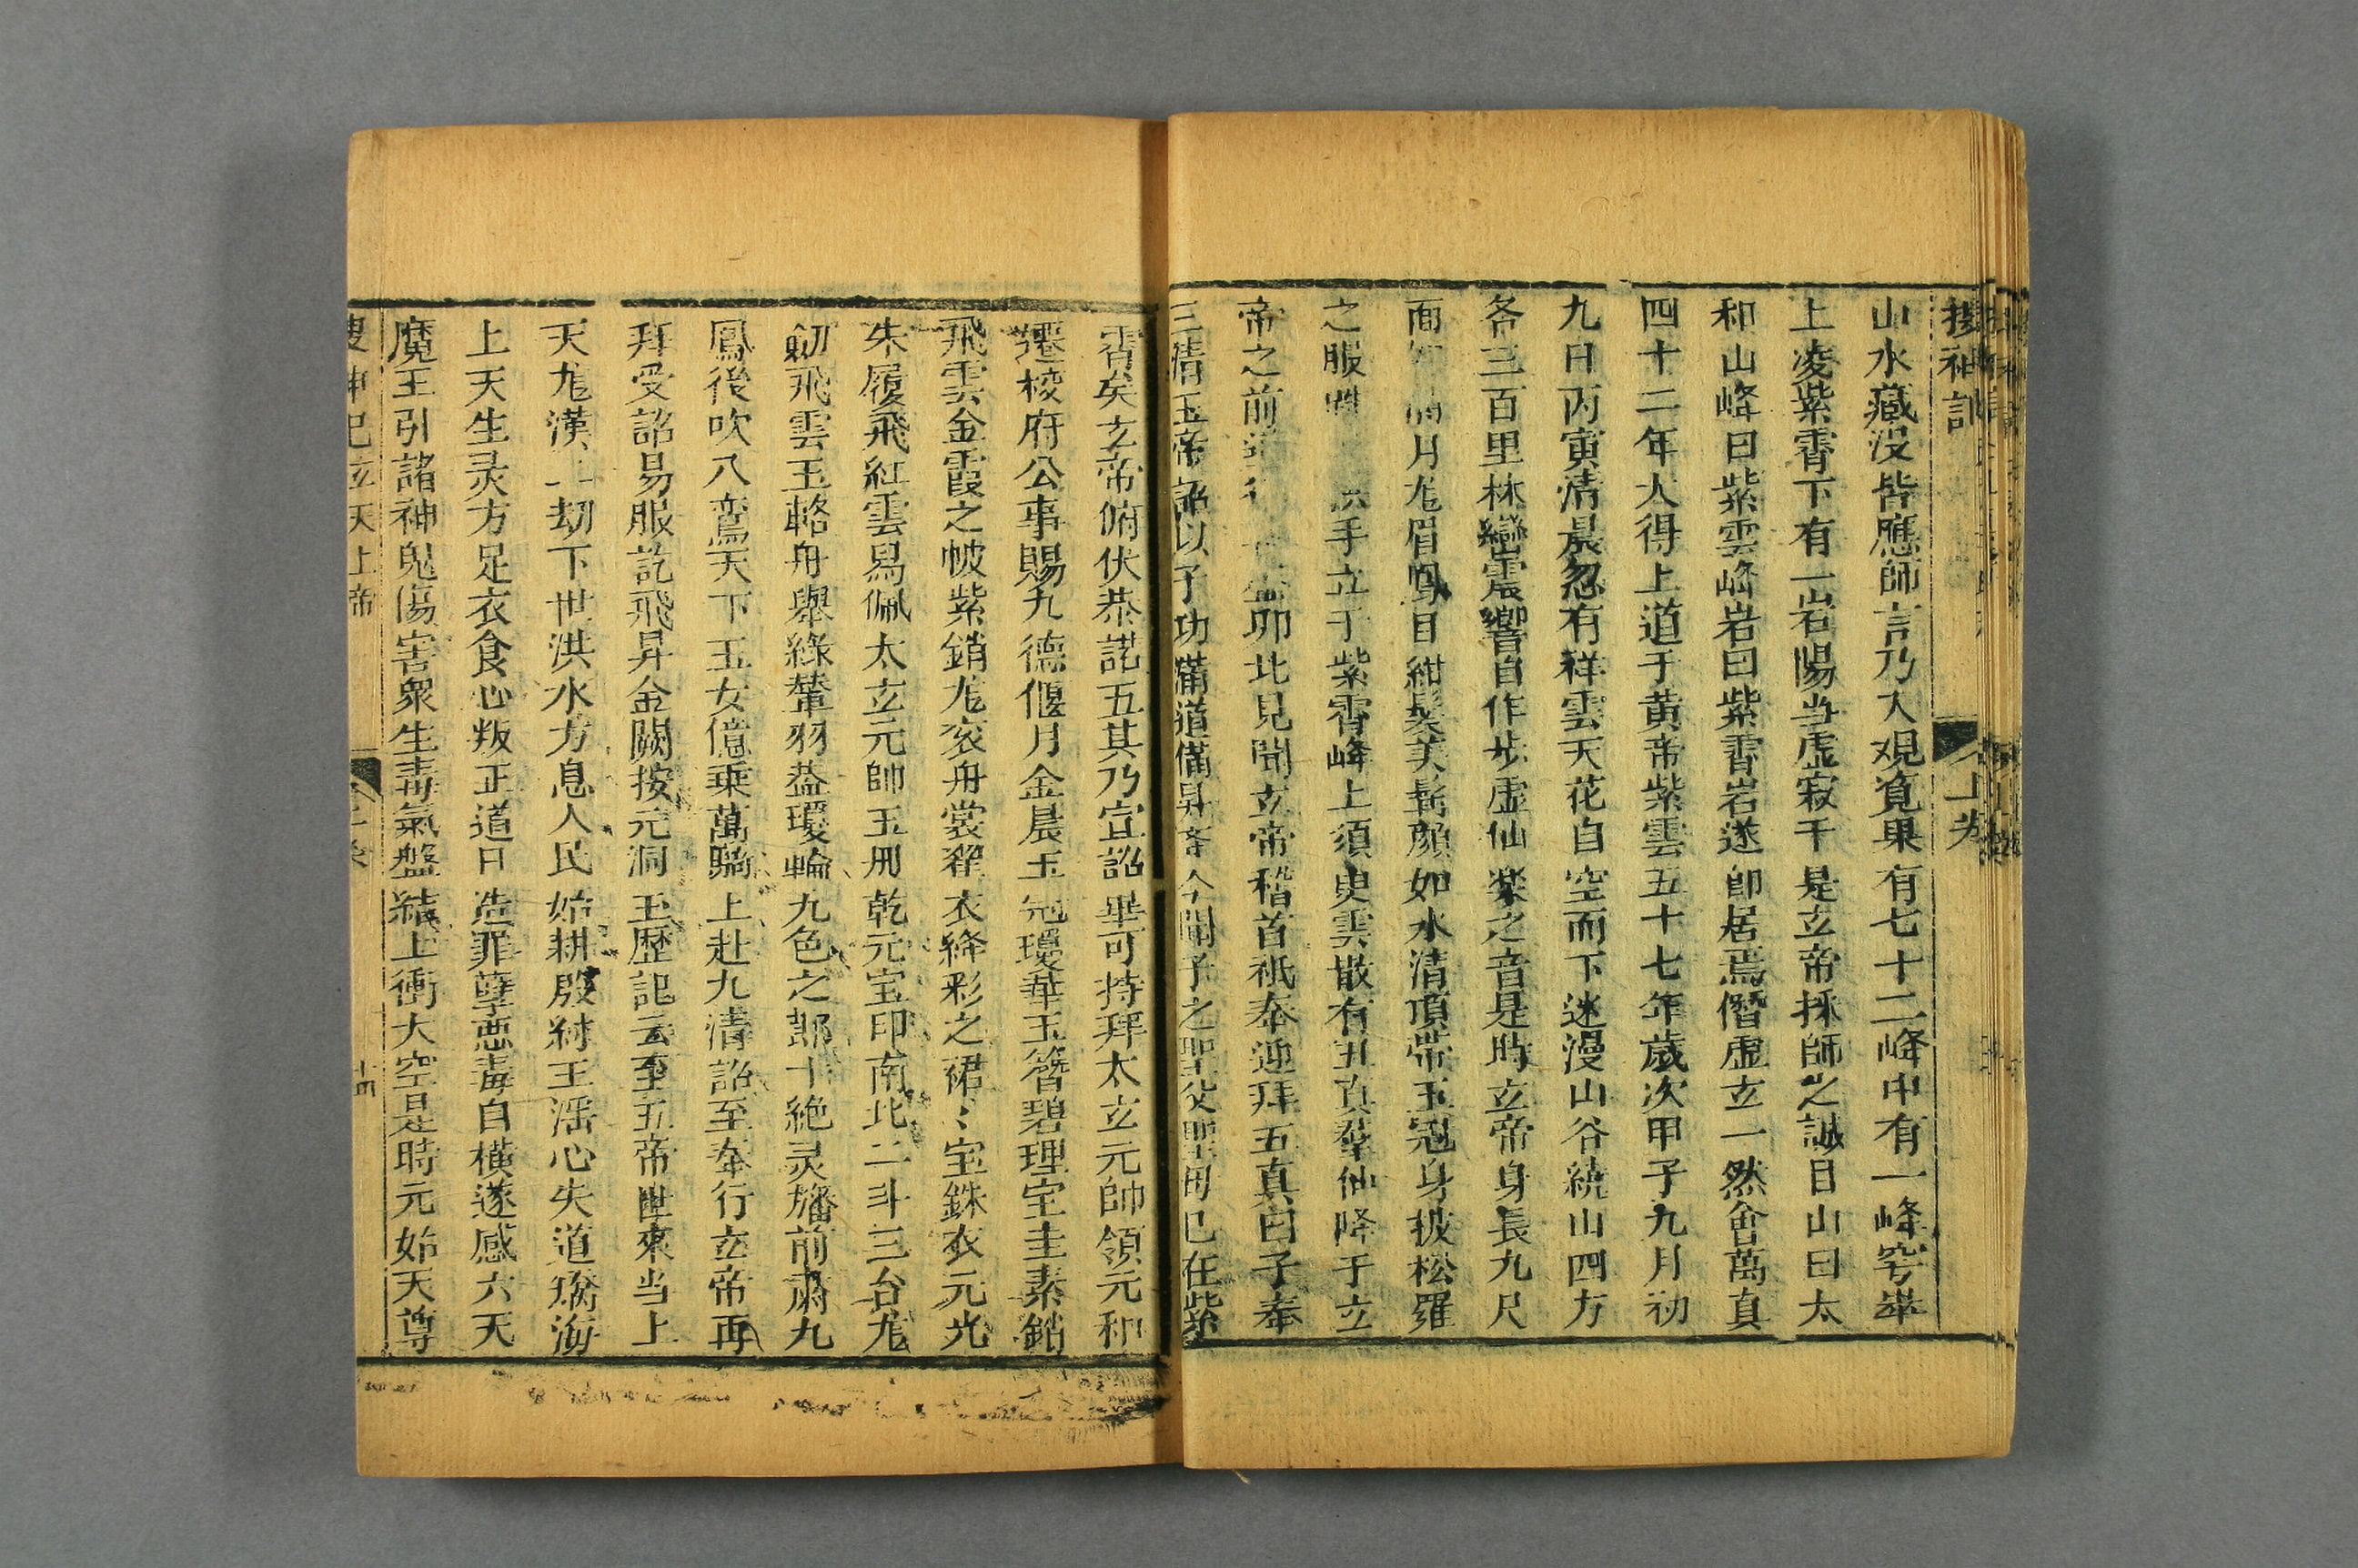 搜神記
上卷
山水藏没皆應師言乃入观覓果有七十二峰中有一峰穹举
上凌紫霄下有一岩陽当虛寂于是玄帝採師之誠目山曰太
和山峰曰紫雲峰岩曰紫霄岩遂即居焉僭虛玄一然會萬真
四十二年大得上道于黄帝紫雲五十七年歲次甲子九月初
九日丙寅清晨忽有祥雲天花自空而下迷漫山谷繞山四方
各三百里林巒震響自作步虛仙楽之音是時玄帝身長九尺
面如 月尨眉鳳目紺髮美髯顔如氷清頂帶玉冠身披松羅
之服 手立于紫霄峰上須臾雲散有五真羣仙降于玄
帝之前 見聞玄帝稽首祇奉迎拜五真曰子奉
三清玉帝詔以子功滿道備昇 今聞子之聖父聖母已在紫
霄矣玄帝俯伏恭諾五其乃宣詔畢可持拜太玄元帥領元和
遷校府公事賜九德偃月金晨玉冠瓊華玉簪碧理宝圭素銷
飛雲金霞之帔紫銷尨衮舟裳翟衣絳彩之裙〻宝銖衣元光
朱履飛紅雲舄佩太玄元帥玉册乾元宝印南北二斗三台尨
剱飛雲玉輅舟舉綠輦羽蓋瓊輪九色之 十絶灵旛前肅九
鳳後吹八鸞天下玉女億乗萬騎上赴九清詔至奉行玄帝再
拜受詔易服訖飛昇金闕按元洞玉歴記云至五帝世來当上
天尨漢 劫下世洪水方息人民始耕殷紂王淫心失道矯誨
上天生灵方足衣食心叛正道日造罪孽惡毒自横遂感六天
魔王引諸神鬼傷害衆生毒氣盤結上衝大空是時元始天尊
搜神記玄天上帝
十四